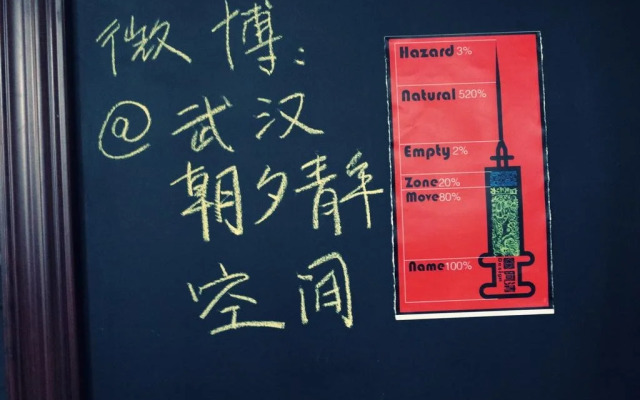 微博:
@武汉
朝夕青年
空间
Hazard 3%
Natural 520%
Empty 2%
Zone 20%
Move 80%
Name 100%